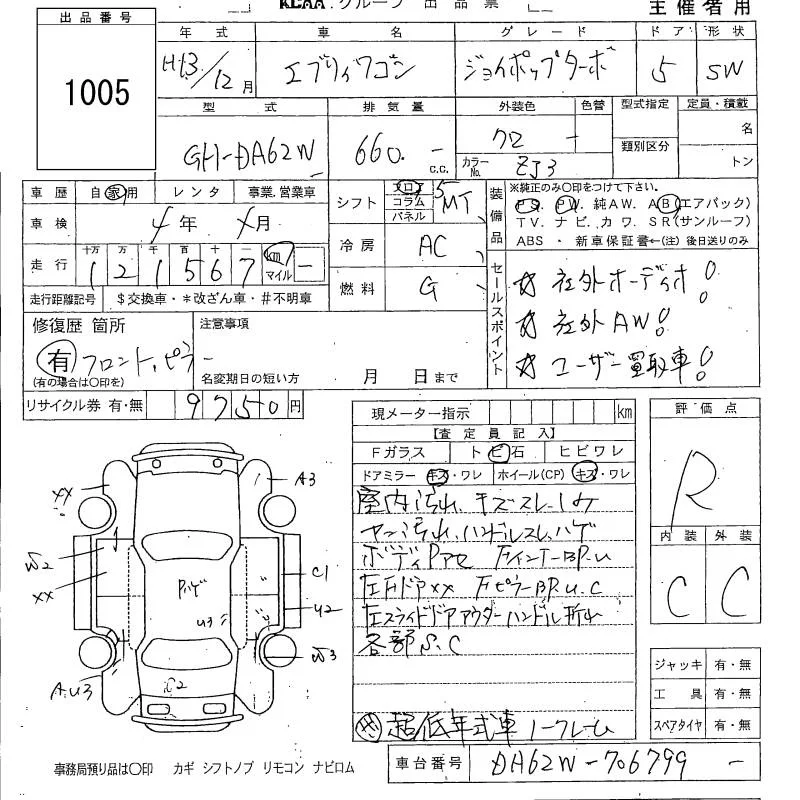 KCAA グループ 出品票
主催者用
出品番号
1005
年式 車名 グレード ドア 形状
H13/12月 エブリィワゴン ジョイポップターボ 5 SW
型式 排気量 外装色 色替 型式指定 定員・積載
GH-DA62W 660.- c.c. クロ - 類別区分 名
カラーNo. ZJ3 トン
車歴 自家用 レンタ 事業.営業車
車検 4年 4月
走行 十万 万 千 百 十 一
1 2 1 5 6 7 km マイル -
走行距離記号 $交換車・*改ざん車・#不明車
シフト フロア コラム パネル 5 MT
冷房 AC
燃料 G
装備品
※純正のみ○印をつけて下さい。
PS. PW. 純AW. AB(エアバック)
TV. ナビ. カワ. SR(サンルーフ)
ABS ・ 新車保証書←(注) 後日送りのみ
セールスポイント
☆ 社外オーディオ!
☆ 社外AW!
☆ ユーザー買取車!
修復歴 箇所 注意事項
有 フロント, ピラー
(有の場合は○印を) 名変期日の短い方 月 日まで
リサイクル券 有・無 9750円
現メーター指示 km
【査定員記入】
Fガラス トビ石 ヒビワレ
ドアミラー キズ・ワレ ホイール(CP) キズ・ワレ
室内汚れ. キズスレ
汚れ. ハンドルスレ. ハゲ
ボディ FインナーBP.u
左Fドアxx FピラーBP.u.C
左スライドドアアウターハンドル折れ
各部 S.C
超低年式車 ノークレーム
評価点
R
内装 外装
C C
ジャッキ 有・無
工具 有・無
スペアタイヤ 有・無
A3
xx
W2
xx
C1
Pハゲ
U3
U2
W3
AU3
C2
事務局預り品は○印 カギ シフトノブ リモコン ナビロム
車台番号 DA62W-706799 -